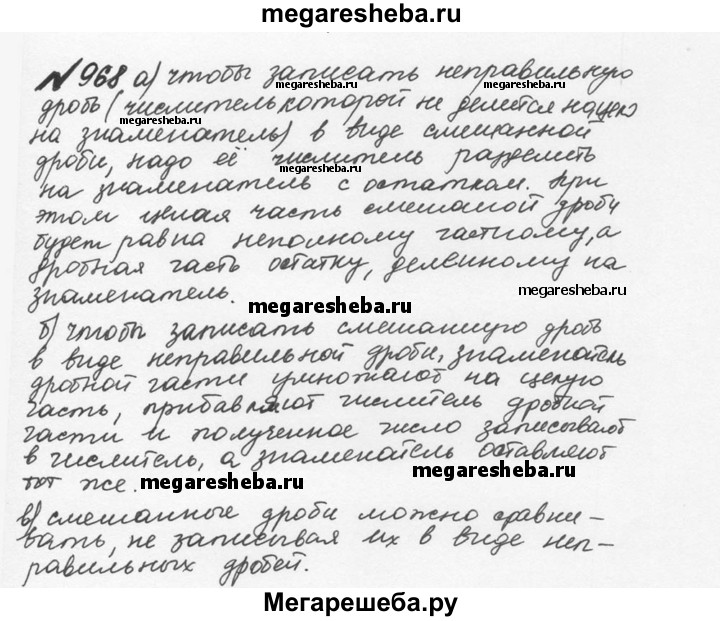 megaresheba.ru
№968 а) чтобы записать неправильную
дробь (числитель которой не делится нацело
megaresheba.ru
megaresheba.ru
на знаменатель) в виде смешанной
дроби, надо её числитель разделить
megaresheba.ru
на знаменатель с остатком. При
этом целая часть смешаной дроби
будет равна неполному частному, а
дробная часть остатку, деленному на
знаменатель.
megaresheba.ru
megaresheba.ru
б) чтобы записать смешанную дробь
в виде неправильной дроби, знаменатель
дробной части умножают на целую
часть, прибавляют числитель дробной
части и полученное число записывают
в числитель, а знаменатель оставляют
тот же.
megaresheba.ru
megaresheba.ru
в) смешанные дроби можно сравни-
вать, не записывая их в виде неп-
равильных дробей.
Мегарешеба.ру